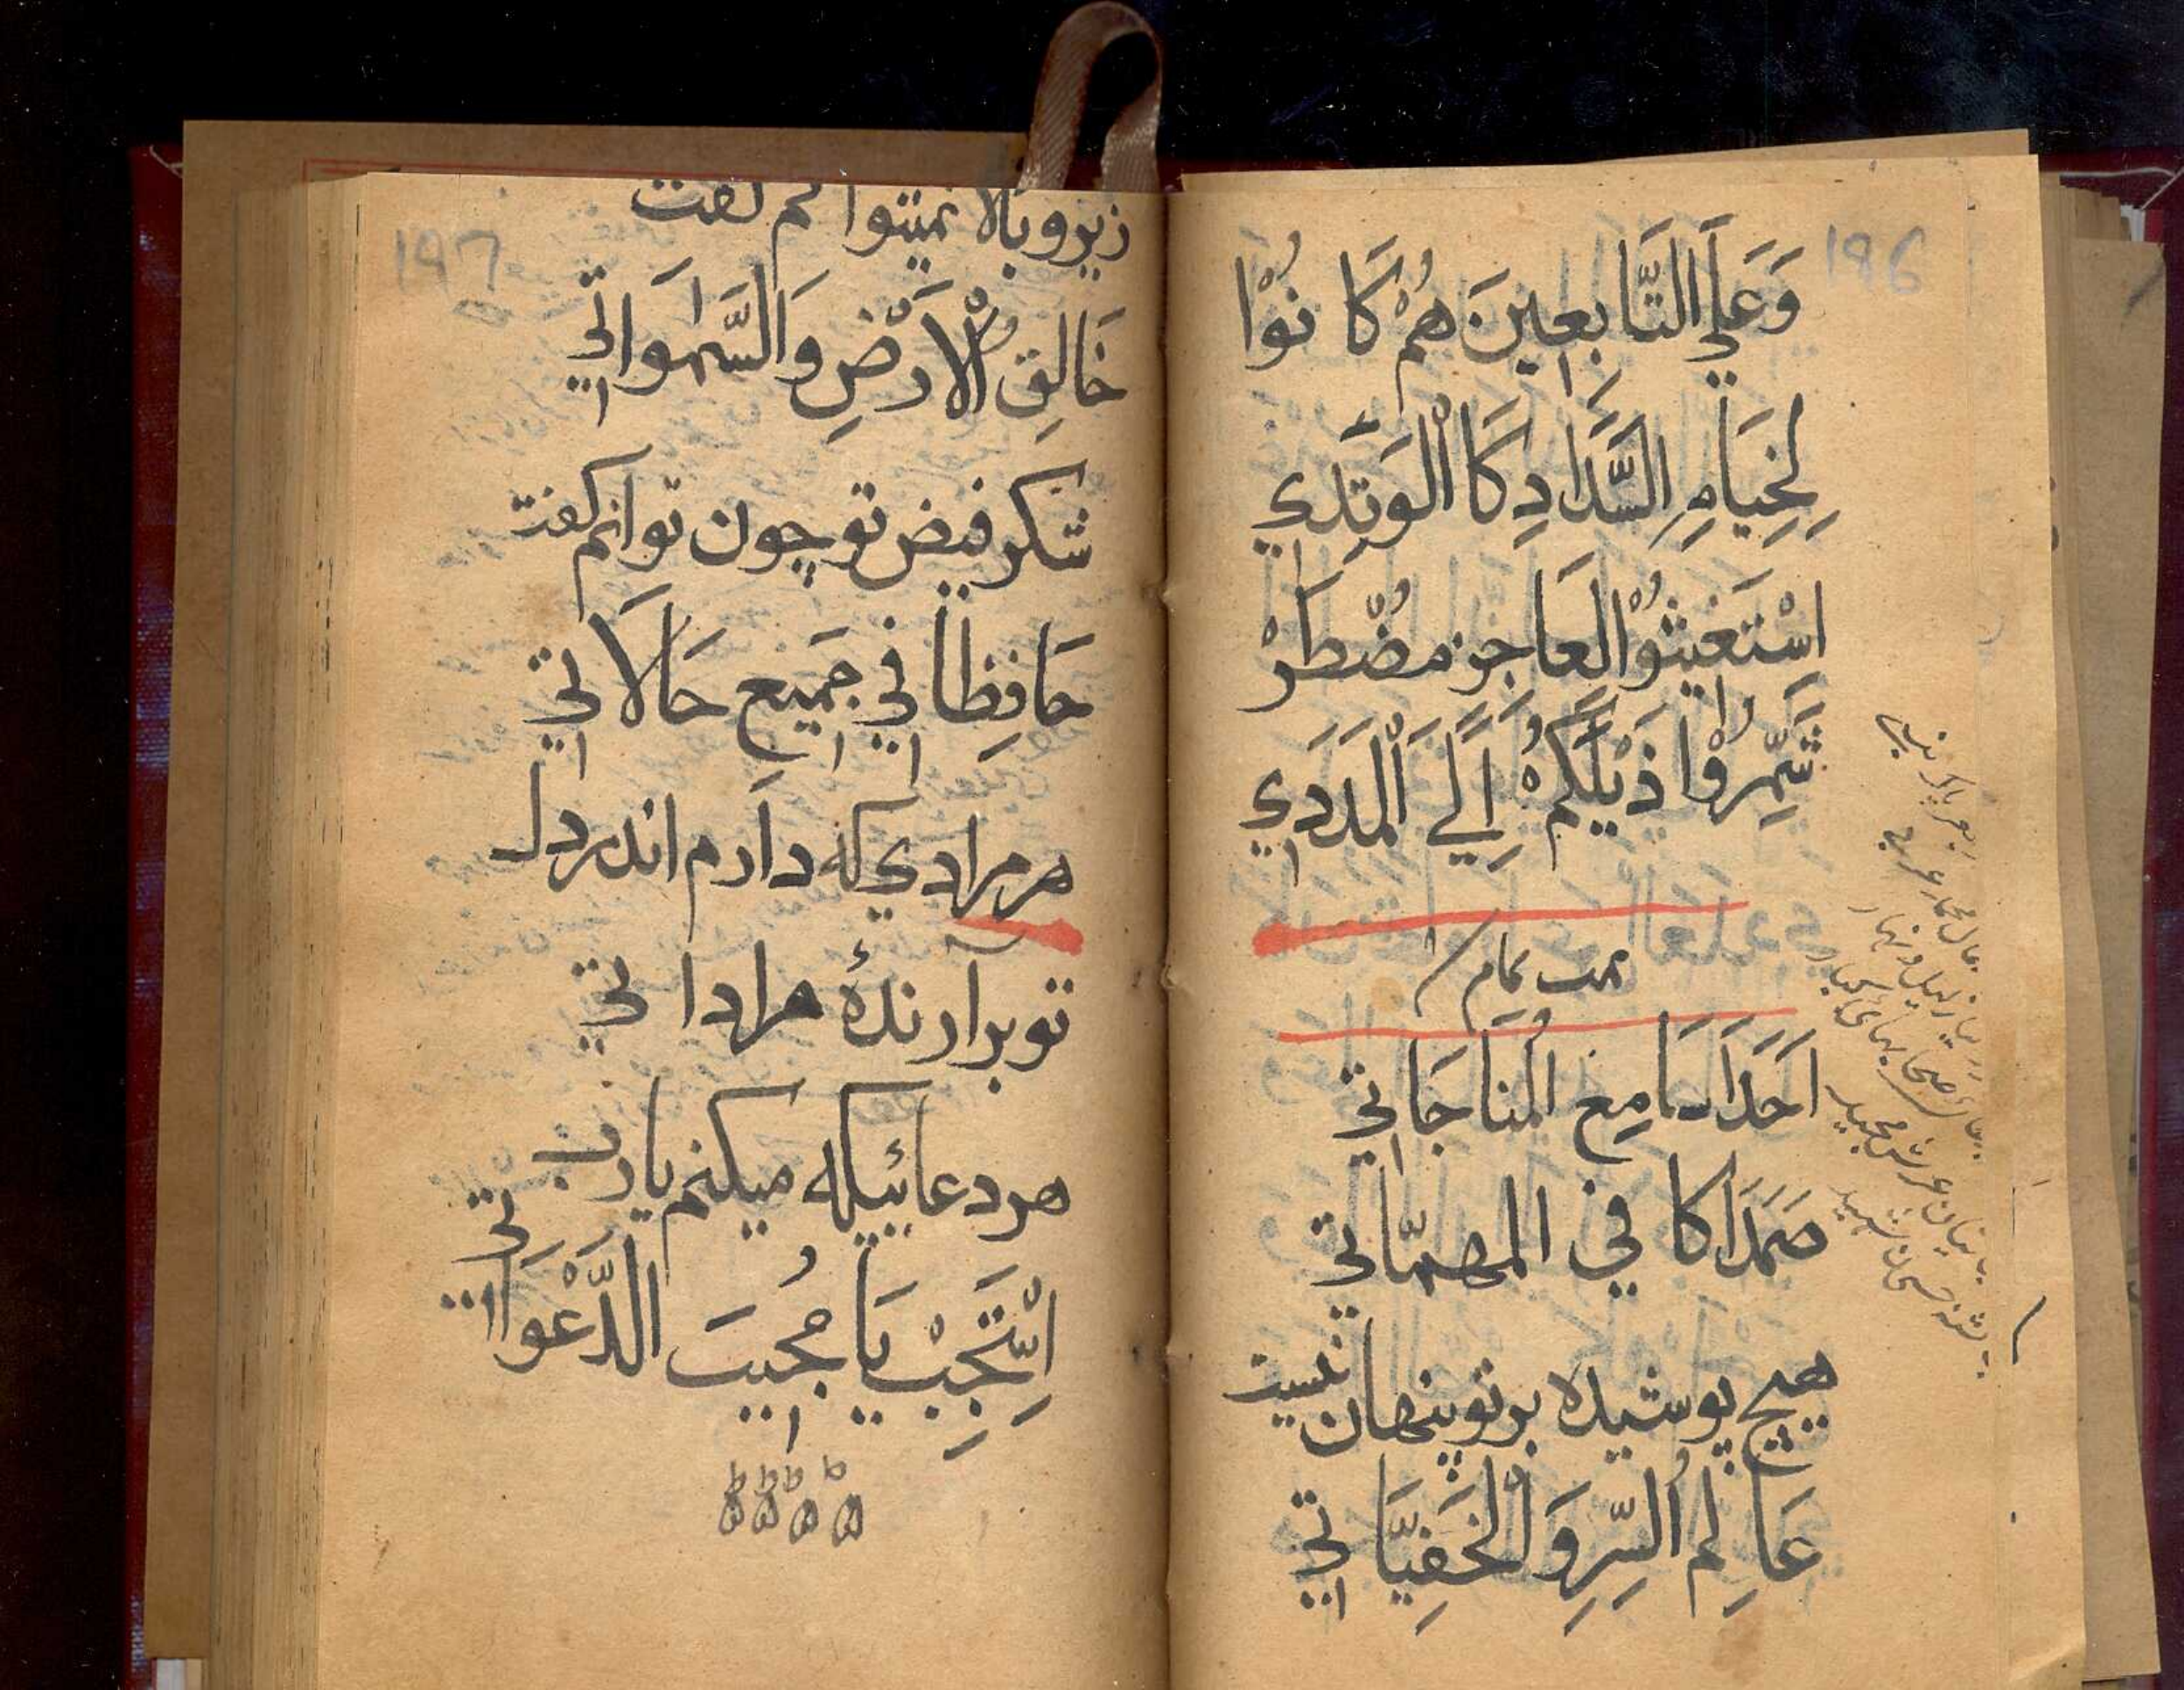 196
وَعَلَي التَّابِعِينَ هُمْ كَانُوْا
لِخِيَامِ السَّدَادِ كَا الْوَتَدِي
اسْتَغِيثُوْا لْعَاجِزٍ مُضْطَرْ
شَمِّرُوْا ذَيْلَكُمْ اِلَي الْمَدَدِي
تمت تمام
اَحَدَا سَامِعَ الْمُنَاجَاتِي
صَمَدَا كَافِي الْمهمّاتِي
هيچ پوشيده بر تو پنهان نيست
عَالِمُ السِّرِ وَ الْخَفِيَّاتِي
197
زير و بالا نميتوانم گفت
خَالِقِ الْاَرْضِ وَالسَّمٰوَاتِي
شكر فيض تو چون توانم گفت
حَافِظَا فِي جَمِيعِ حَالَاتِي
هر مرادي كه دارم اندر دل
تو بر آرندهٔ مراداتي
هر دعائيكه ميكنم يارب
اِسْتَجِبْ يَا مُجِيبَ الدَّعْوَاتِي